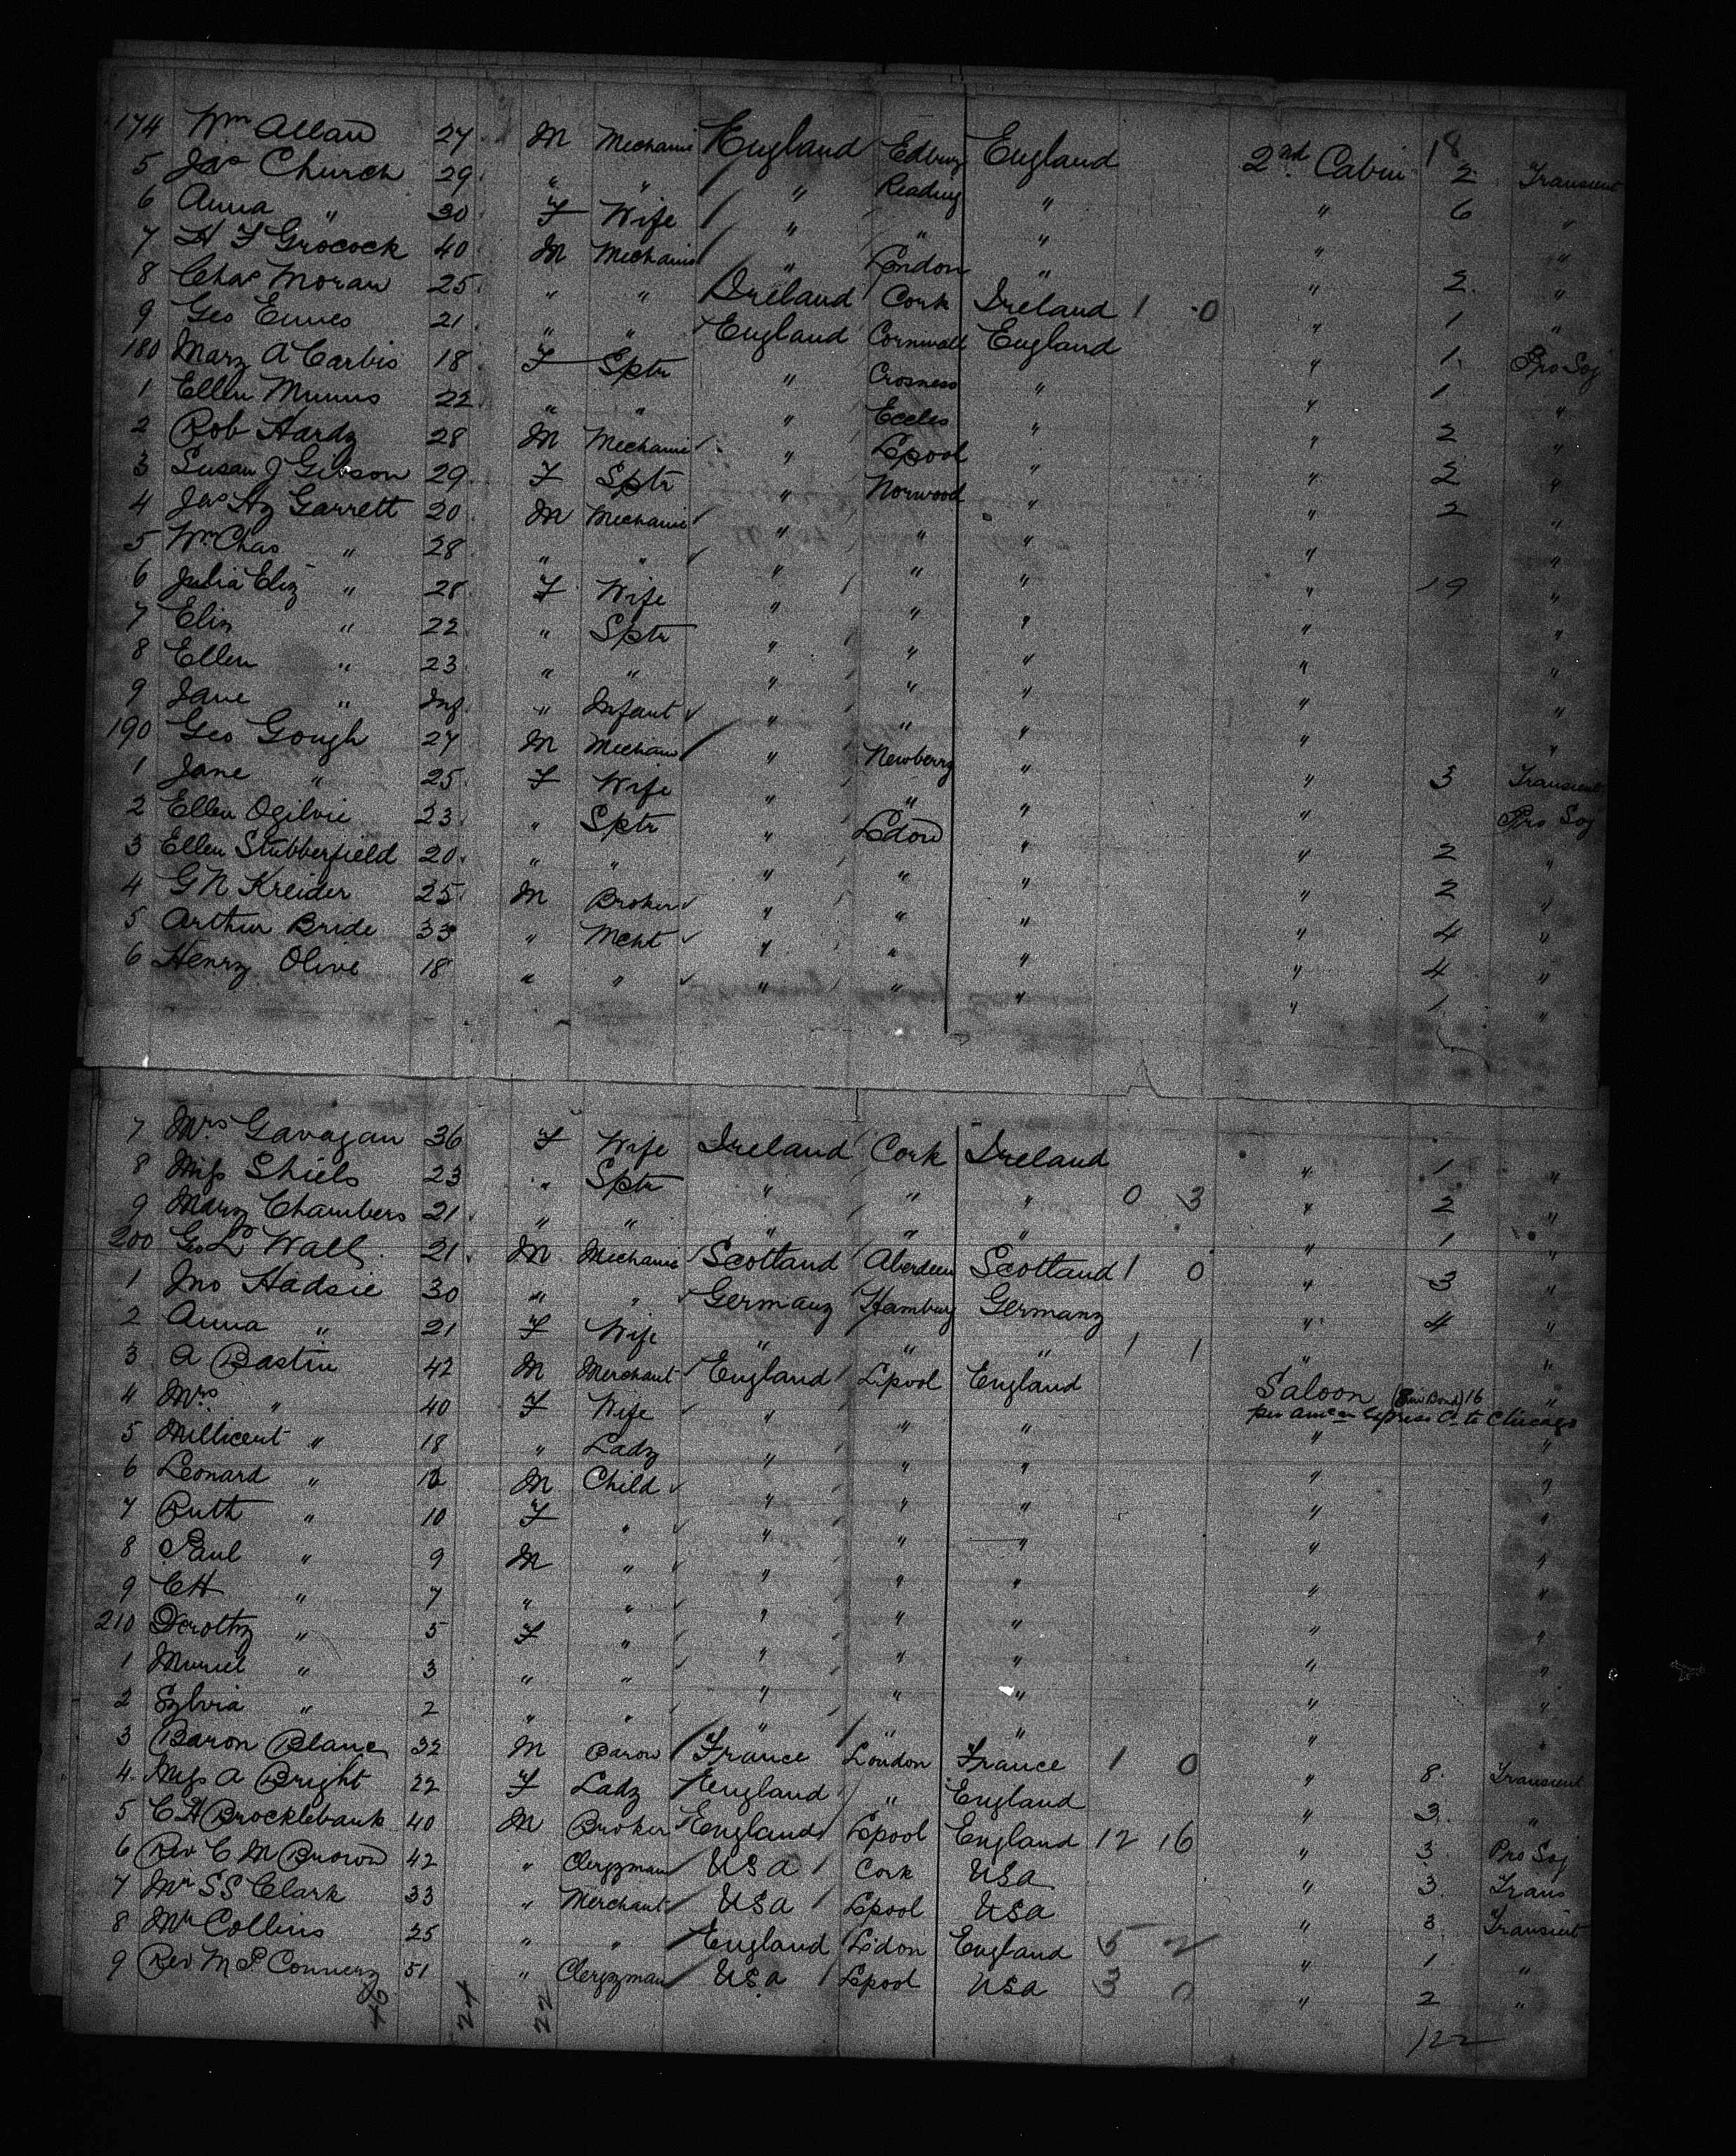 174 Wm Allan 27 M Mechanic England England 2nd Cabin 18 2 Transient
5 Jas Church 29 " " " Reading " " 6 "
6 Anna " 30 F Wife " " " " "
7 H F Grocock 40 M Mechanic " London " " 2 "
8 Chas Moran 25 " " Ireland Cork Ireland 1 0 " 1 "
9 Geo Ennes 21 " " England Cornwall England " 1 Pro Soj
180 Mary A Carbis 18 F Sptr " Crosness " " 1 "
1 Ellen Munns 22 " " " Eccles " " 2 "
2 Rob Hardy 28 M Mechanic " Lpool " " 2 "
3 Susan J Gibson 29 F Sptr " Norwood " " 2 "
4 Jas Hy Garrett 20 M Mechanic " " " " "
5 Wm Chas " 28 " " " " " " 19 "
6 Julia Eliz " 28 F Wife " " " " "
7 Eliz " 22 " Sptr " " " " "
8 Ellen " 23 " " " " " " "
9 Jane " Inf " Infant " " " " "
190 Geo Gough 27 M Mechanic " Newberry " " 3 Transient
1 Jane " 25 F Wife " " " " Pro Soj
2 Ellen Ogilvie 23 " Sptr " Ldon " " 2 "
3 Ellen Stubberfield 20 " " " " " " 2 "
4 G N Kreider 25 M Broker " " " " 4 "
5 Arthur Bride 33 " Mcht " " " " 4 "
6 Henry Olive 18 " " " " " " 1 "
7 Mrs Gavagan 36 F Wife Ireland Cork Ireland " 1 "
8 Miss Shiels 23 " Sptr " " " 0 3 " 2 "
9 Mary Chambers 21 " " " " " " 1 "
200 Geo L Wall 21 M Mechanic Scotland Aberdeen Scotland 1 0 " 3 "
1 Jno Hadsie 30 " " Germany Hamburg Germany " 4 "
2 Anna " 21 F Wife " " " 1 1 " "
3 A Bastin 42 M Merchant England Lipool England Saloon 16 "
per Amcn Express Co to Chicago
4 Mrs " 40 F Wife " " " " "
5 Millicent " 18 " Lady " " " " "
6 Leonard " 12 M Child " " " " "
7 Ruth " 10 F " " " " " "
8 Paul " 9 M " " " " " "
9 C H " 7 " " " " " " "
210 Dorothy " 5 F " " " " " "
1 Muriel " 3 " " " " " " "
2 Sylvia " 2 " " " " " " "
3 Baron Blanc 32 M Baron France London France 1 0 " 8 Transient
4 Miss A Bright 22 F Lady England " England " 3 "
5 C H Brocklebank 40 M Broker England Lpool England 12 16 " 3 Pro Soj
6 Rev C M Brown 42 " Clergyman USA Cork USA " 3 Trans
7 Mr S S Clark 33 " Merchant USA Lpool USA " 3 Transient
8 Mr Collins 25 " " England Ldon England 5 2 " 1 "
9 Rev M P Connery 51 " Clergyman USA Lpool USA 3 0 " 2 "
46 24 22 122